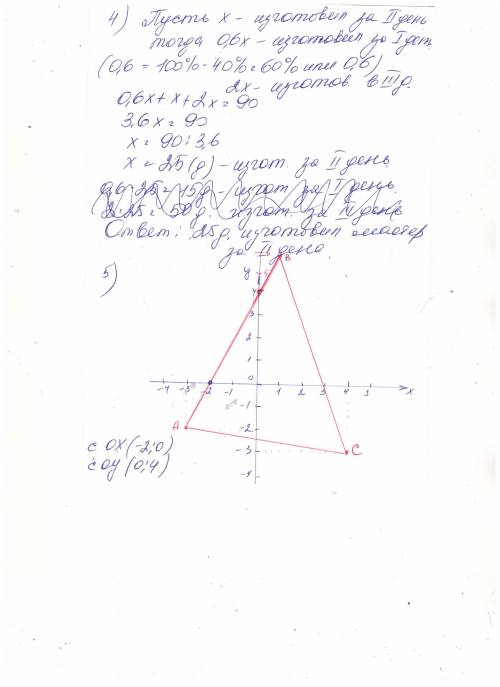 4) Пусть х - изготовил за II день
тогда 0,6х - изготовил за I день
(0,6 = 100% - 40% = 60% или 0,6)
2х - изготов. в III д.
0,6х + х + 2х = 90
3,6х = 90
х = 90 : 3,6
х = 25 (д) - изгот. за II день
0,6·25 = 15д - изгот. за I день.
2·25 = 50д. изгот. за III день
Ответ: 25д. изготовил мастер
за II день.
5)
у 5 В
4
3
2
1
-4 -3 -2 -1 0 1 2 3 4 5 х
-1
А -2
-3 С
-4
с ОХ (-2;0)
с ОУ (0;4)